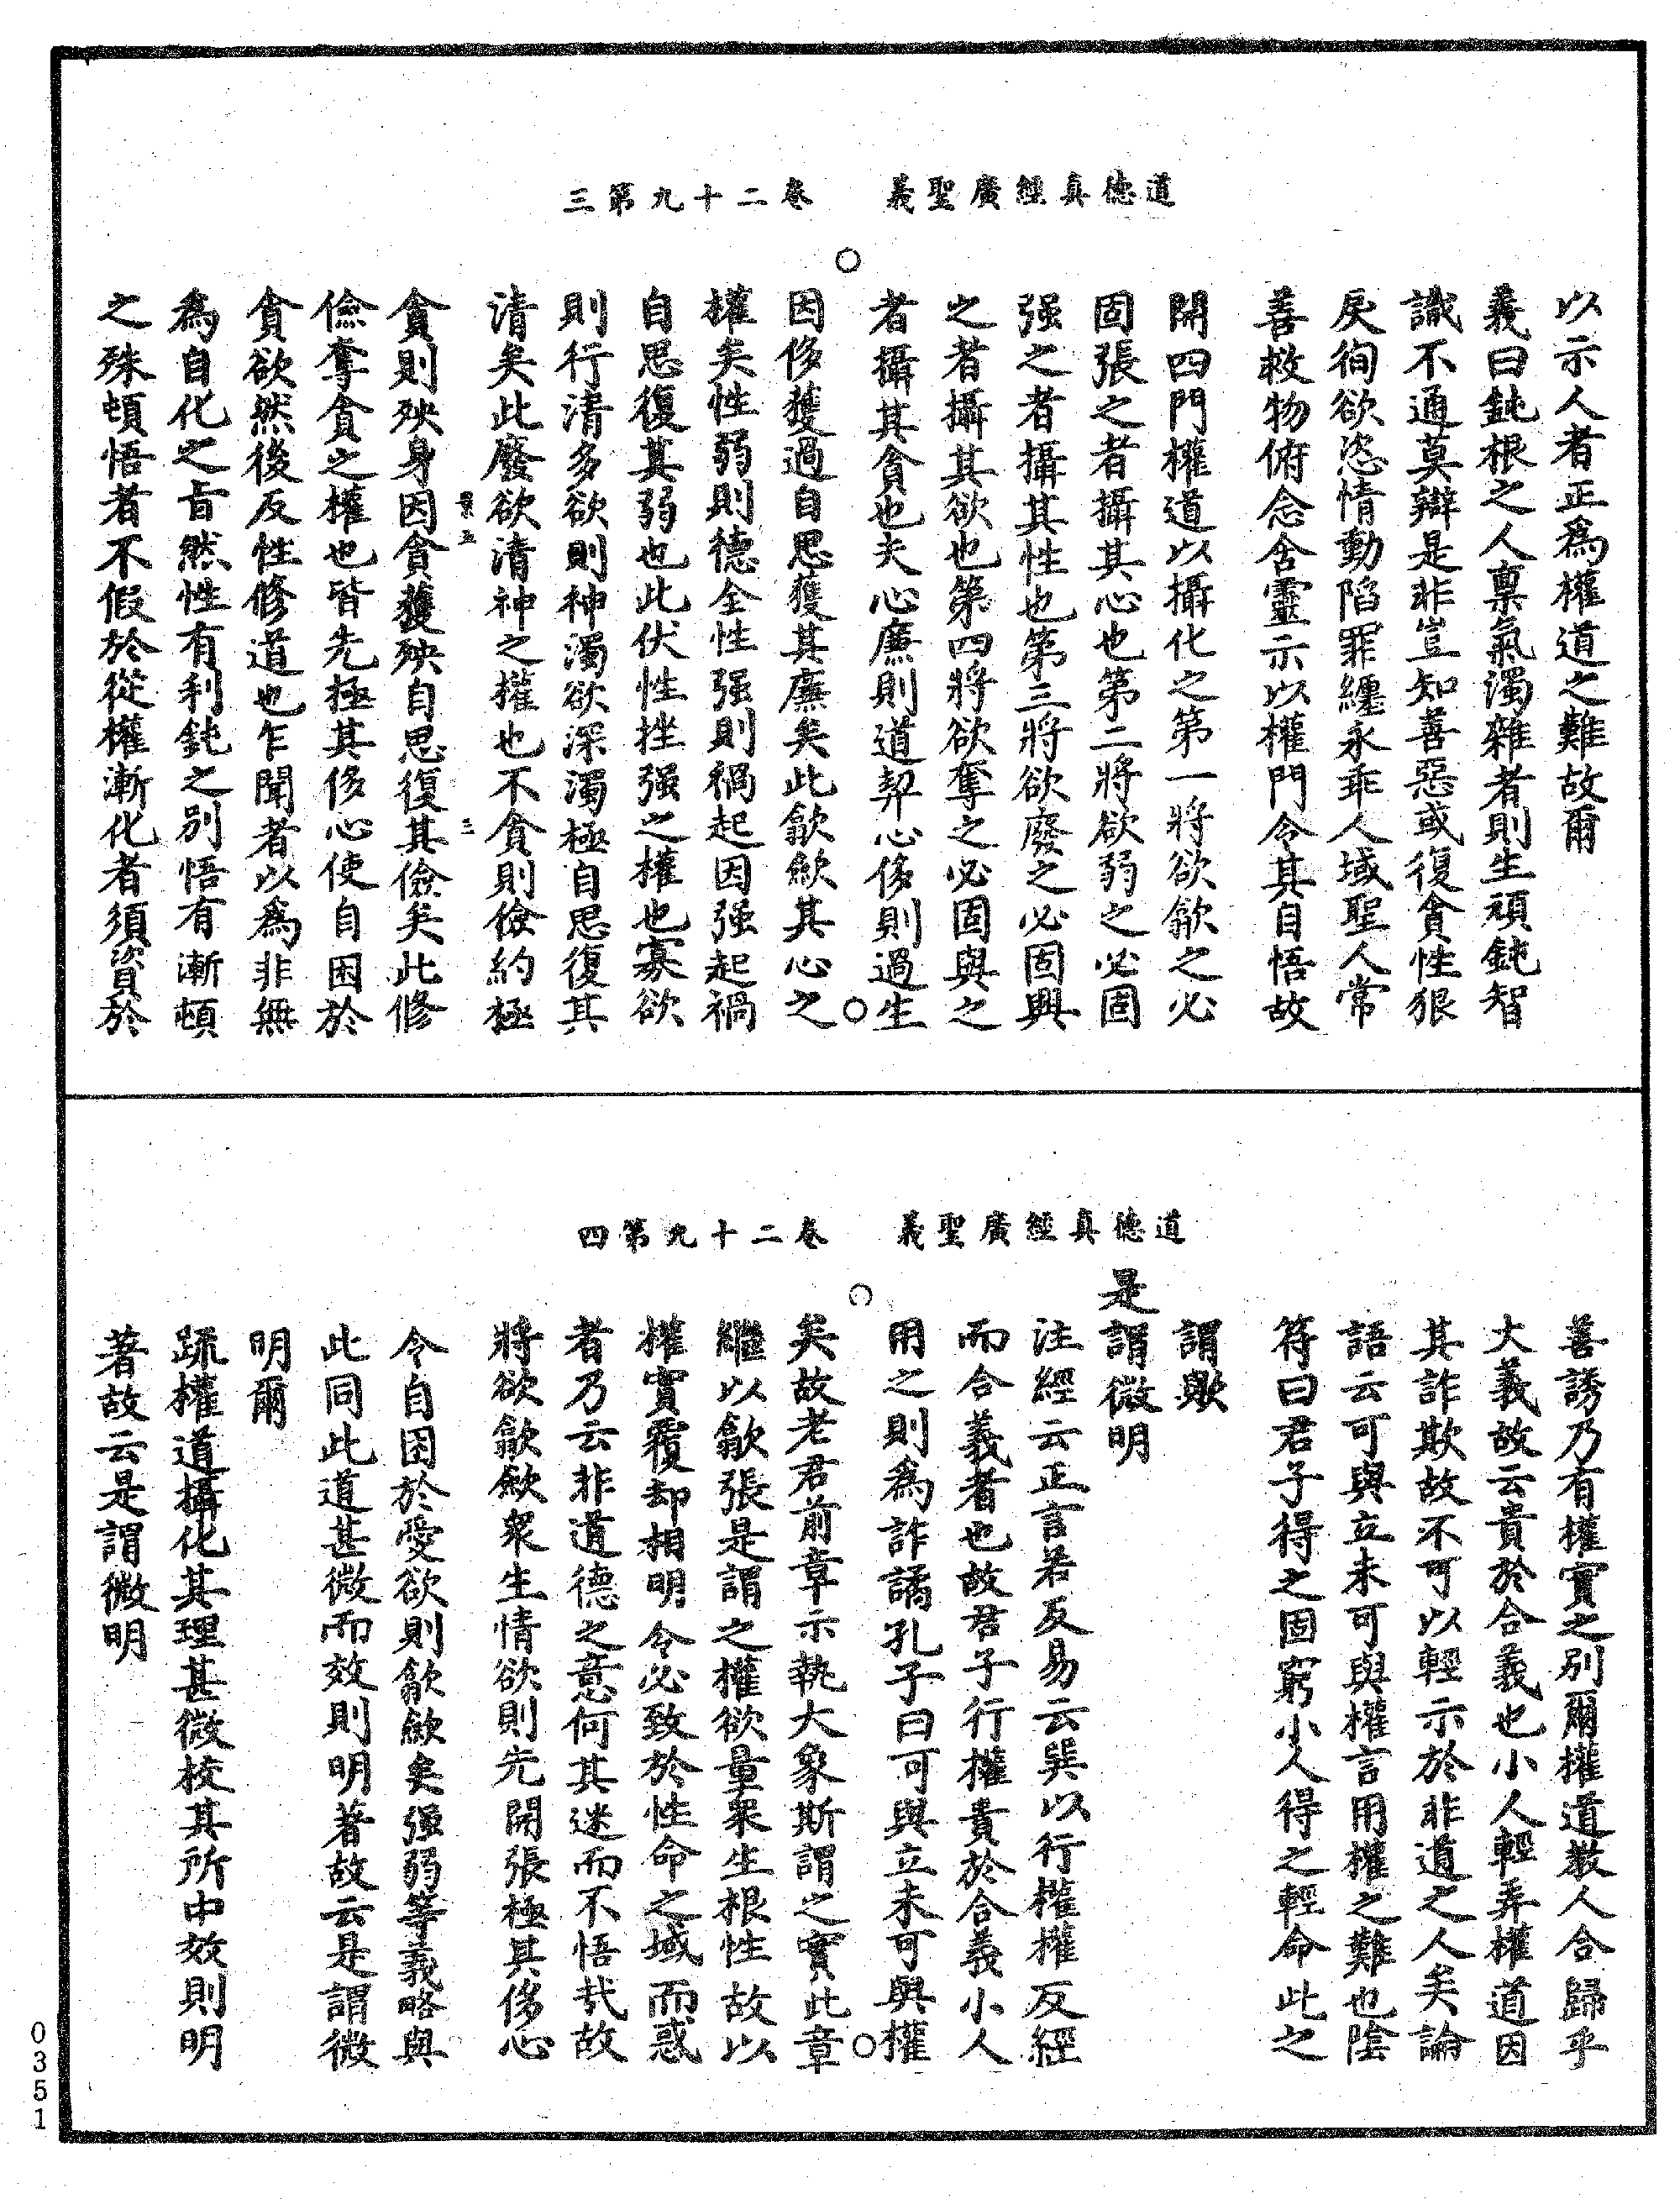 道德真經廣聖義　卷二十九第三
以示人者正爲權道之難故爾
義曰鈍根之人禀氣濁雜者則生頑鈍智
識不通莫辯是非豈知善惡或復貪性狠
戾徇欲恣情動陷罪纏永乖人域聖人常
善救物俯念含靈示以權門令其自悟故
開四門權道以攝化之第一將欲歙之必
固張之者攝其心也第二將欲弱之必固
强之者攝其性也第三將欲廢之必固興
之者攝其欲也第四將欲奪之必固與之
者攝其貪也夫心廉則道契心侈則過生
因侈獲過自思獲其廉矣此歙歛其心之
權矣性弱則德全性强則禍起因强起禍
自思復其弱也此伏性挫强之權也寡欲
則行清多欲則神濁欲深濁極自思復其
清矣此廢欲清神之權也不貪則儉約極
貪則殃身因貪獲殃自思復其儉矣此修
儉奪貪之權也皆先極其侈心使自困於
貪欲然後反性修道也乍聞者以爲非無
爲自化之旨然性有利鈍之別悟有漸頓
之殊頓悟者不假於從權漸化者須資於
道德真經廣聖義　卷二十九第四
善誘乃有權實之别爾權道教人合歸乎
大義故云貴於合義也小人輕弄權道因
其詐欺故不可以輕示於非道之人矣論
語云可與立未可與權言用權之難也陰
符曰君子得之固窮小人得之輕命此之
謂歟
是謂微明
注經云正言若反易云巽以行權權反經
而合義者也故君子行權貴於合義小人
用之則爲詐譎孔子曰可與立未可與權
矣故老君前章示執大象斯謂之實此章
繼以歙張是謂之權欲量衆生根性故以
權實覆却相明令必致於性命之域而惑
者乃云非道德之意何其迷而不悟哉故
將欲歙歛衆生情欲則先開張極其侈心
令自困於愛欲則歙歛矣强弱等義略與
此同此道甚微而效則明著故云是謂微
明爾
疏權道攝化其理甚微校其所中效則明
著故云是謂微明
0351